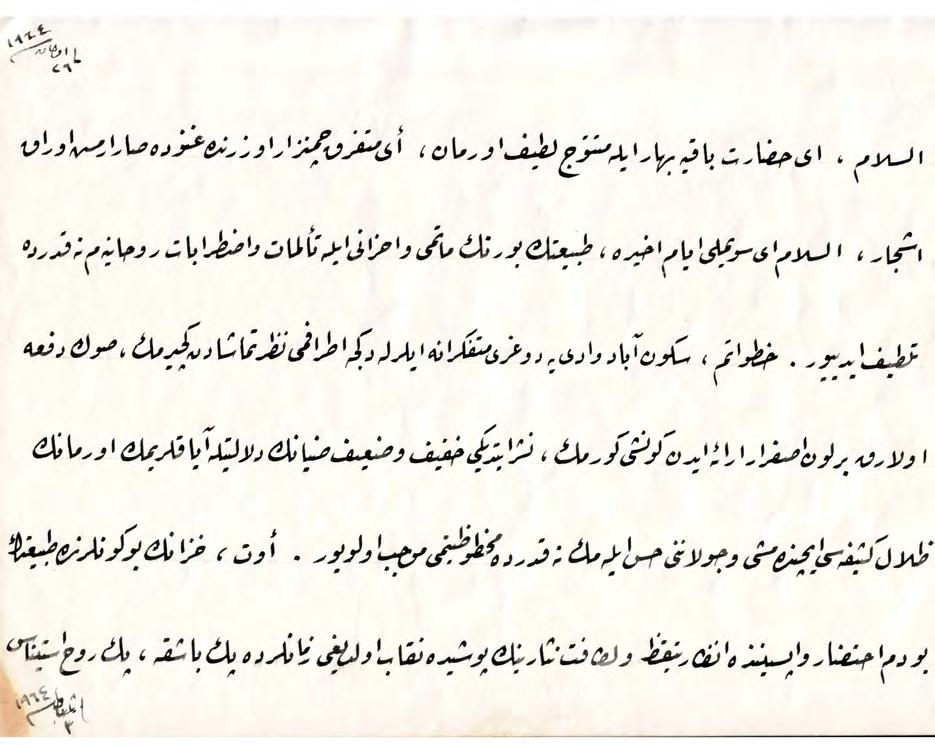 ١٩٦٤
٢٦
السلام ، ای حضارت باقیهٔ بهار ایله متوّج لطیف اورمان ، أی متفرق چمنزار اوزرنده غنوده صارارمش اوراق
اشجار ، السلام ای سویملی ایام اخیره ، طبیعتك بورنك ماتمی واحزانی ایله تألمات واضطرابات روحانیه‌م نه قدرده
تلطیف ایدییور . خطواتم ، سكون آباد وادی‌یه دوغری متفكرانه ایلرلەدكجه اطرافمی نظر تماشادن كچیرمك ، صوك دفعه
اولارق برلون اصفرار ارائه ایدن كونشی كورمك ، نشر ایتدیكی خفیف وضعیف ضیانك دلالتیله آیاقلریمك اورمانك
ظلال كثیفه‌سی ایچنده مشی وجولاننی حس ایله‌مك نه قدرده محظوظیتمی موجب اولویور . أوت ، خزانك بو كونلرنده طبیعتك
بو دم احتضار واپسیننده انظار تیقظ ولطافت نثارینك پوشیدهٔ نقاب اولدیغی زمانلرده پك باشقه ، پك روح استیناس
١٩٦٤
٣